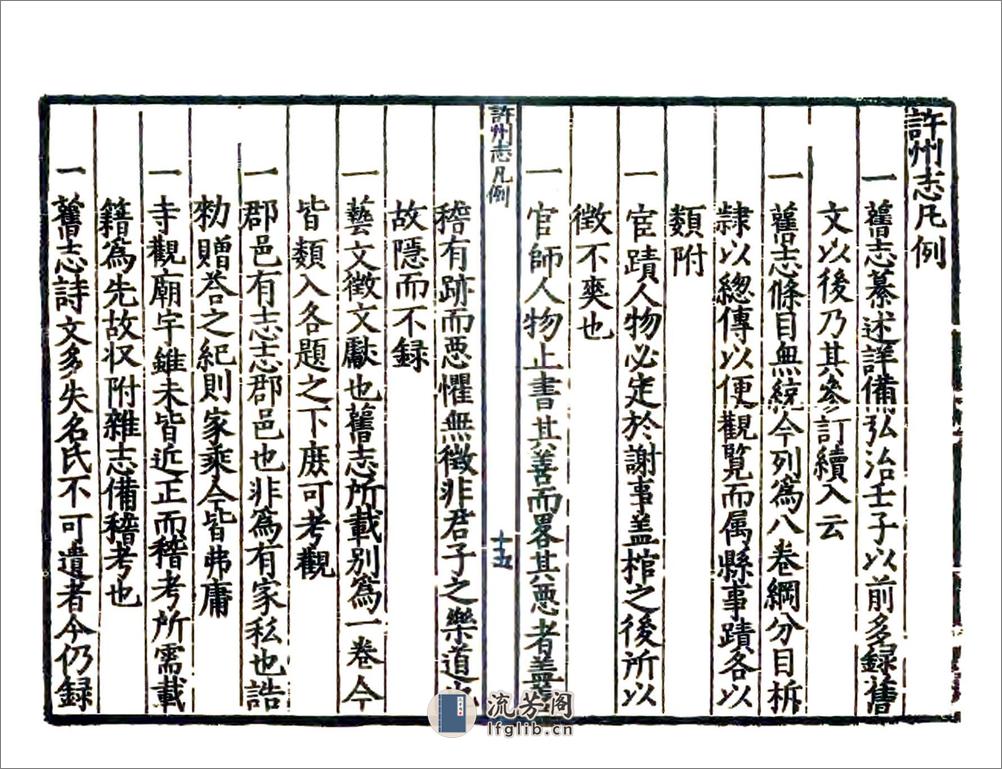 許州志凡例
一舊志纂述詳備弘治壬子以前多録舊
文以後乃其參訂續入云
一舊志條目無統今列爲八卷綱分目析
隷以總傳以便觀覽而属縣事蹟各以
類附
一宦蹟人物必定於謝事盖棺之後所以
徵不爽也
一官師人物止書其善而畧其惡者盖善
許州志凡例
十五
稽有跡而惡懼無徵非君子之樂道也
故隱而不録
一藝文徵文獻也舊志所載别爲一卷今
皆類入各題之下庻可考觀
一郡邑有志志郡邑也非爲有家私也誥
勑贈荅之紀則家乘今皆弗庸
一寺觀廟宇雖未皆近正而稽考所需載
籍爲先故収附雜志備稽考也
一舊志詩文多失名氏不可遺者今仍録
流芳阁
lfglib.cn